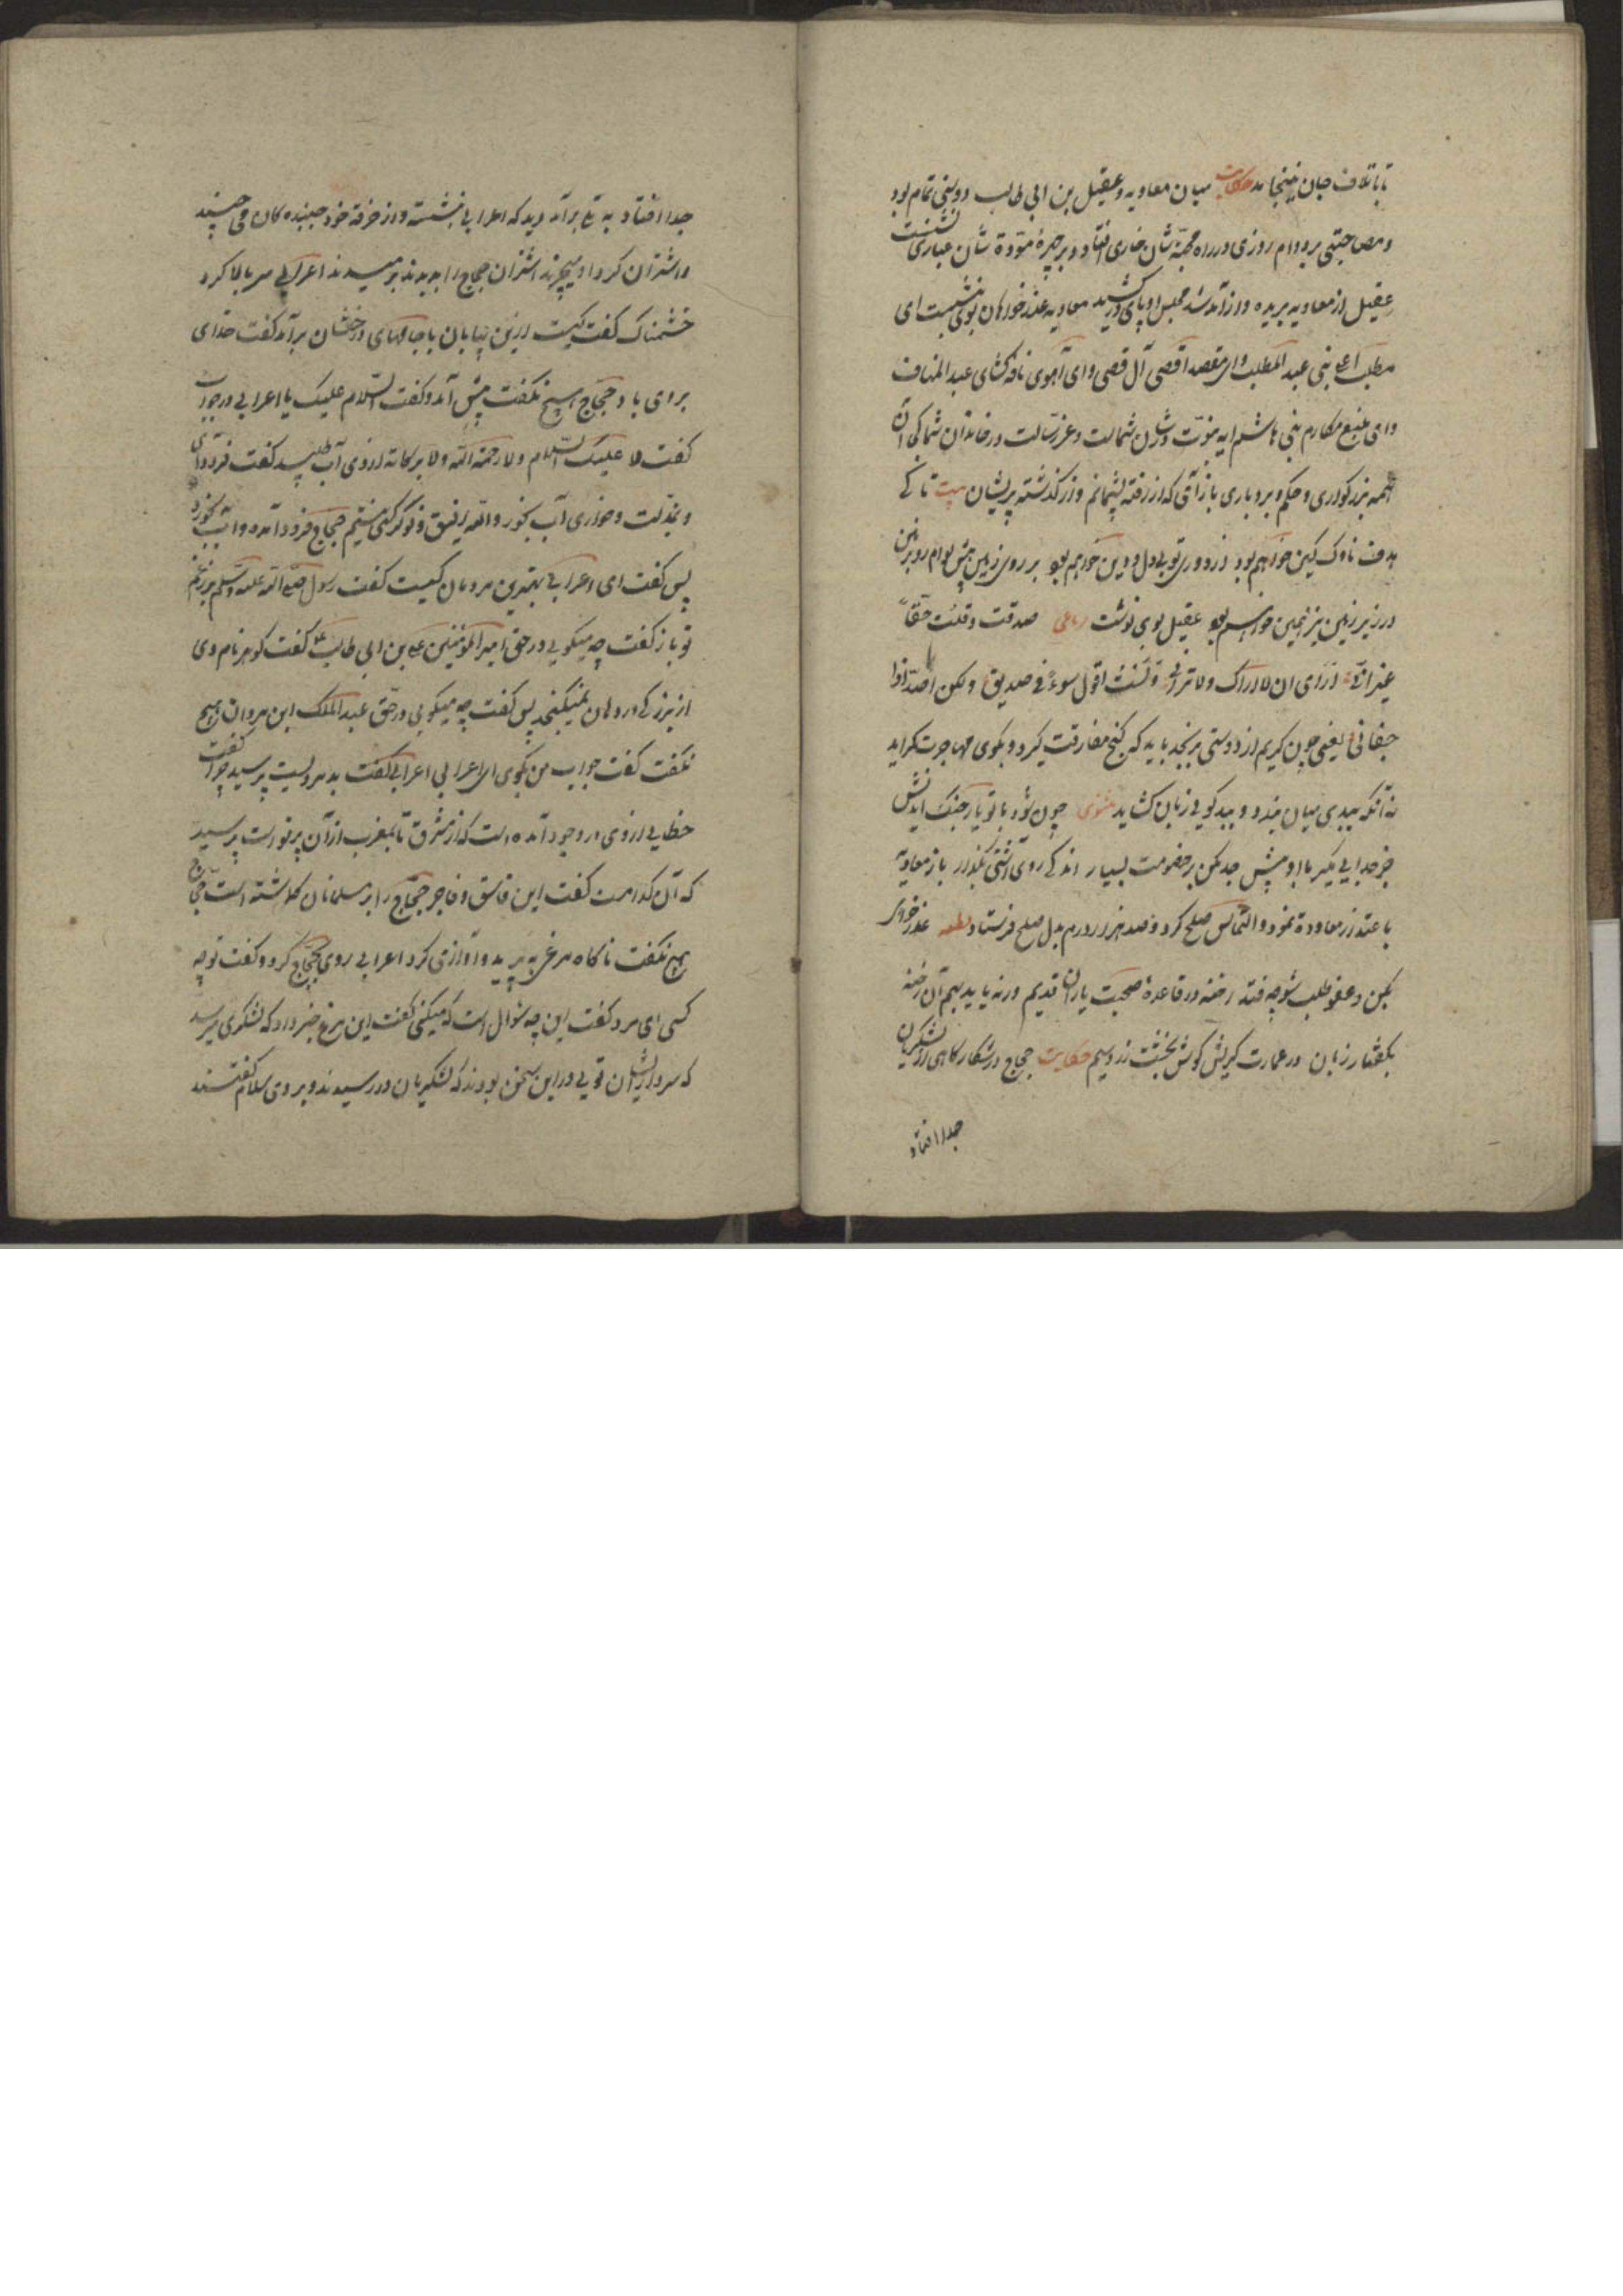 تا باتلاف جان نینجامد حکایت میان معاویه و عقیل بن ابی طالب دوستی تمام بود
و مصاحبتی بر دوام روزی در راه محبت شان خاری افتاد و بر چهره مودة شان غباری نشست
عقیل از معاویه بریده و از آمد شد مجلس او پای در کشید معاویه عذر خواهان بوی نبشت ای
مطلب اعلی بنی عبد المطلب و ای مقصد اقصی آل قصی و ای آهوی نافه گشای عبد المناف
و ای منبع مکارم بنی هاشم ایه نبوت در شان شماست و عز رسالت در خاندان شما کجا شد آن
همه بزرکواری و حکم و بردباری باز آی که از رفته پشیمانم و از کذشته پریشان بیت تا کی
هدف ناوک کین خواهم بود از دوری تو بی دل و دین خواهم بود بر روی زمین پیش تو ام رو بزمین
در زیر زمین نیز همین خواهم بود عقیل بوی نوشت رباعی صدقت و قلت حقا
غیر انی اری ان لا اراک و لا ترانی و لست اقول سوءً فی صدیق و لکن اصد اذا
جفانی یعنی چون کریم از دوستی برنجد باید که کنج مفارقت کیرد و بکوی مهاجرت کراید
نه آنکه ببدی میان بندد و ببد کویی زبان کشاید مثنوی چون شود با تو یار جنک اندیش
جز جدایی مکیر با او پیش جد مکن بر خصومت بسیار اندکی روی آشتی بگذار باز معاویه
باعتذار معاودة نمود و التماس صلح کرد و صد هزار درم بدل صلح فرستاد قطعه عذر خواهی
بکن و عفو طلب شو چه فتد رخنه در قاعدهٔ صحبت یاران قدیم ور نه یابد بهم آن رخنه
بکفتار زبان در عمارت کریش کوش بخشت زر و سیم حکایت حجاج در شکار کاهی از لشکریان
جدا افتاد
جدا افتاد به تلی بر آمد دید که اعرابی نشسته و از خرقه خود جنبنده کان می چیند
و اشتران کرد او میچرند اشتران حجاج را بدیدند برمیدند اعرابی سر بالا کرد
خشمناک کفت کیست ازین بیابان با جامهای درخشان بر آمد کفت خدای
بر وی باد حجاج هیچ نکفت پیش آمد و کفت السلام علیک یا اعرابی در جواب
کفت لا علیک السلام و لا رحمة الله و لا برکاته از وی آب طلبید کفت فرود آی
و بمذلت و خواری آب بخور و الله رفیق و نوکر کسی نیستم حجاج فرود آمده و آب بخورد
پس کفت ای اعرابی بهترین مردمان کیست کفت رسول صلی الله علیه و سلم بر رغم
تو باز کفت چه میکویی در حق امیر المؤمنین علی بن ابی طالب کفت کوهر نام وی
از بزرکی در دهان نمیکنجد پس کفت چه میکویی در حق عبد الملک ابن مروان هیچ
نکفت کفت جواب من بکوی ای اعرابی اعرابی کفت بد مردیست پرسید چرا کفت
خطایی از وی در وجود آمده است که از مشرق تا بمغرب از آن پر شور است پرسید
که آن کدام است کفت این فاسق و فاجر حجاج را بر مسلمانان کماشته است حجاج
هیچ نکفت ناکاه مرغی به پرید و آوازی کرد اعرابی روی بحجاج کرد و کفت تو چه
کسی ای مرد کفت این چه سوال است که میکنی کفت این مرغ خبر داد که لشکری میرسد
که سردار ایشان تویی در این سخن بودند که لشکریان در رسیدند و بر وی سلام کفتند